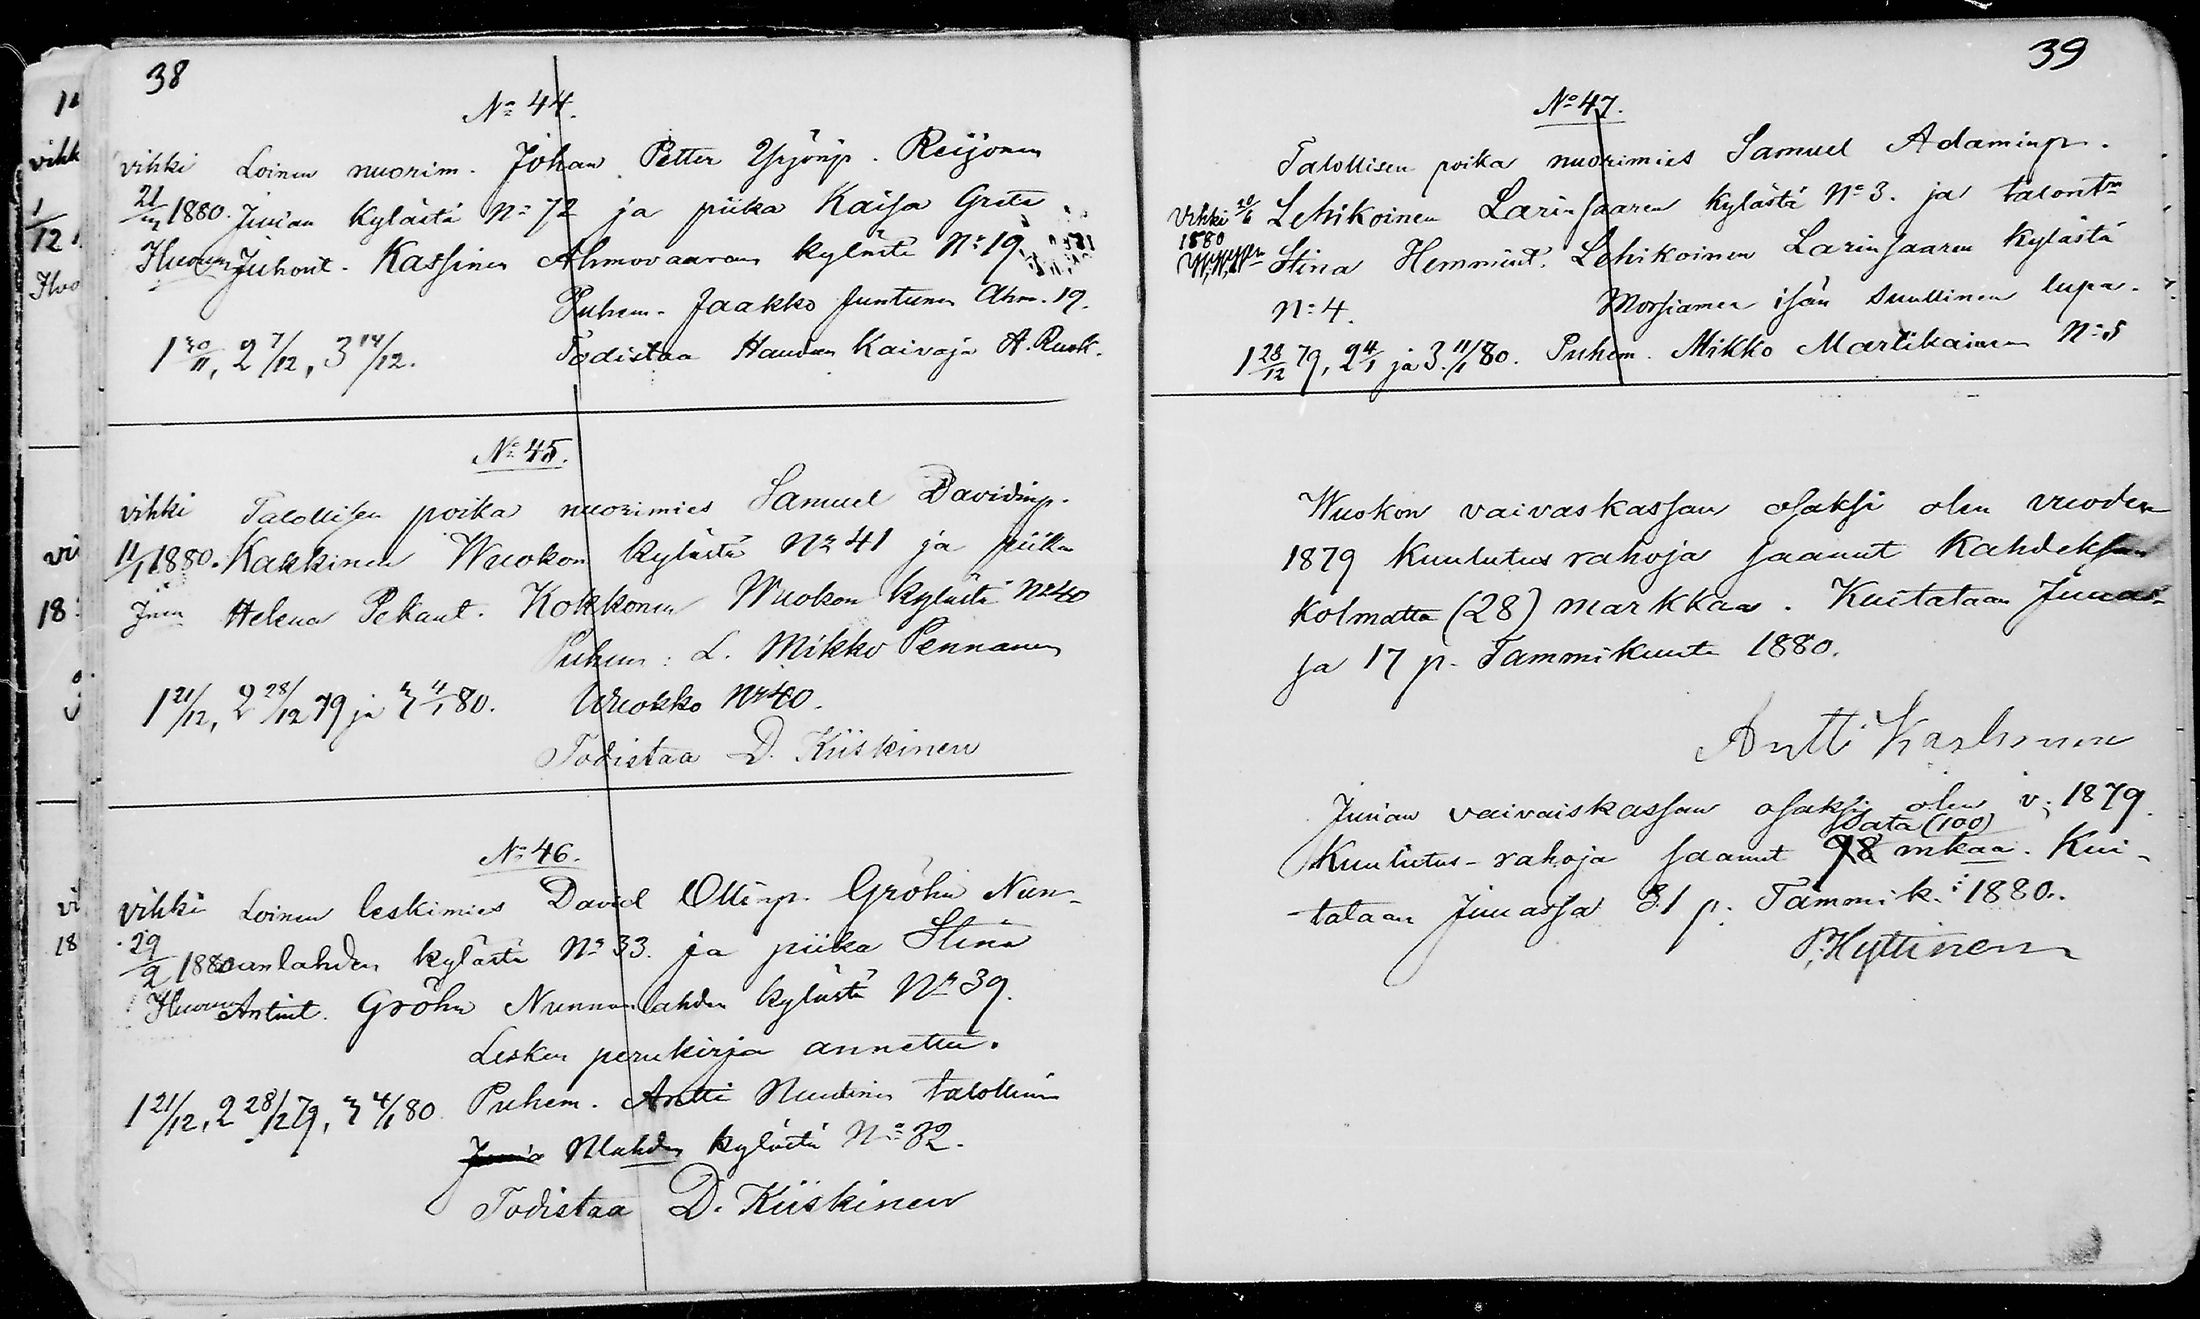 38
No 44.
vihki Loinen nuorim. Johan Petter Yrjönp. Reijonen
21/3 1880. Juuan kylästä No 72 ja piika Kaisa Greta
Juhont. Kassinen Ahmovaaran kylästä No 19
Puhem. Jaakko Juntunen Ahm. 19.
1 30/11, 2 7/12, 3 14/12. Todistaa Hauvan Kaivaja A. Rusk.
No 45.
vihki Talollisen poika nuorimies Samuel Davidinp.
11/1 1880. Kakkinen Wuokon kylästä No 41 ja piika
Helena Pekant. Kokkonen Wuokon kylästä No 40
Puhem: L. Mikko Pennanen
1 21/12, 2 28/12 79 ja 3 4/1 80. Wuokko No 40.
Todistaa D. Kiiskinen
No 46.
vihki Loinen leskimies David Ollinp. Gröhn Nun-
29/2 1880 nanlahden kylästä No 33. ja piika Stina
Antint. Gröhn Nunnanlahden kylästä No 39.
Lesken perukirja annettu.
1 21/12, 2 28/12 79, 3 4/1 80. Puhem. Antti Nuutinen talollinen
Nlahden kylästä No 32.
Todistaa D. Kiiskinen
39
No 47.
Talollisen poika nuorimies Samuel Adaminp.
Vihki 20/6 Lehikoinen Larinsaaren kylästä No 3. ja talont
1880 Stina Hemmint. Lehikoinen Larinsaaren kylästä
No 4. Morsiamen isän suullinen lupa.
1 28/12 79, 2 4/1 ja 3. 11/1 80. Puhem. Mikko Martikainen No 5
Wuokon vaivaskassan osaksi olen vuoden
1879 kuulutus rahoja saanut kahdeksan
kolmatta (28) markkaa. Kuitataan Juuas-
sa 17 p. Tammikuuta 1880.
Antti Karhunen
Juuan vaivaiskassan osaksi olen v. 1879.
sata (100)
Kuulutus-rahoja saanut 98 mkaa. Kui-
tataan Juuassa 31 p. Tammik. 1880.
P. Hyttinen